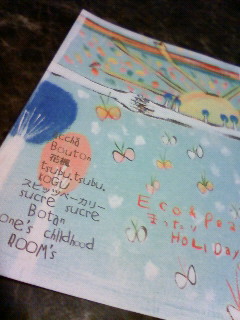 Bouton
花楓
tsubu.tsubu.
KOGU
スピッツベーカリー
sucré sucre
Botan
one's childhood
ROOM's
Eco&Peace
まったり
HOLIDAY